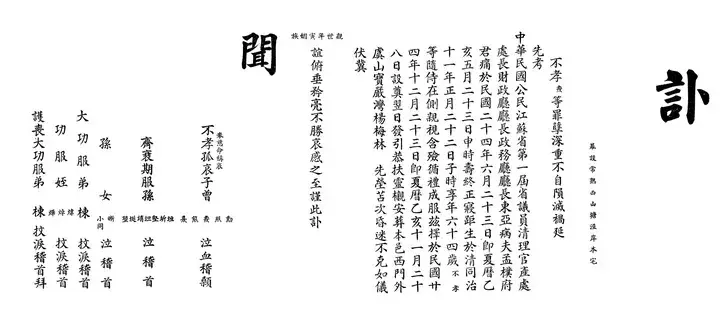 訃
幕設常熟西山塘涇岸本宅
不孝等罪孽深重不自隕滅禍延
先考
中華民國公民江蘇省第一屆省議員清理官產處
處長財政廳廳長政務廳廳長東亞病夫孟樸府
君痛於民國二十四年六月二十三日即夏曆乙
亥五月二十三日申時壽終正寢距生於清同治
十一年正月二十二日子時享年六十四歲不孝
等隨侍在側親視含殮循禮成服茲擇於民國廿
四年十二月二十三日即夏曆乙亥十一月二十
八日設奠翌日發引恭扶靈櫬安葬本邑西門外
虞山寶嚴灣楊梅林 先塋苫次昏迷不克如儀
伏冀
聞
世年寅姻族
誼俯垂矜亮不勝哀感之至謹此訃
奉慈命稱哀
不孝孤哀子曾 泣血稽顙
齊衰期服孫 泣稽首
孫女 小同 泣稽首
大功服弟 棟 抆淚稽首
功服姪 抆淚稽首
護喪大功服弟 棟 抆淚稽首拜